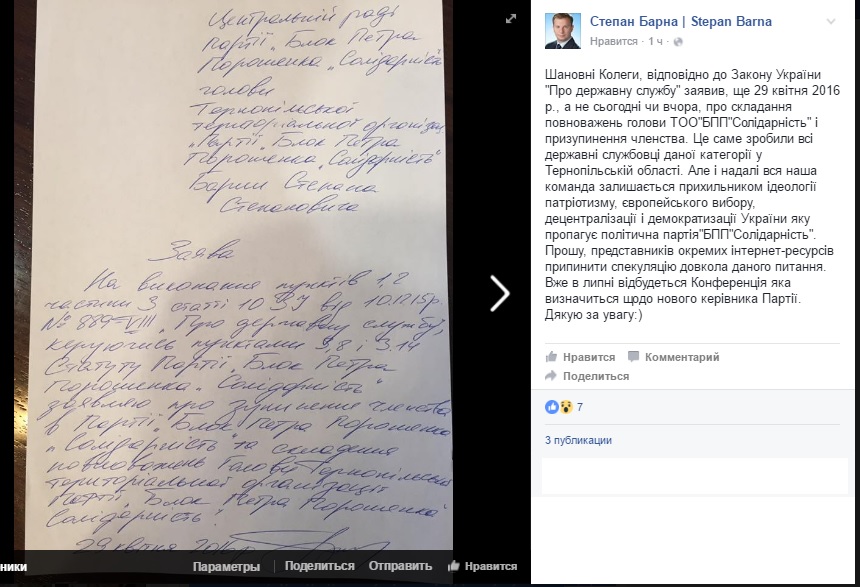 Центральній раді
Партії „Блок Петра
Порошенка „Солідарність"
голови
Тернопільської
територіальної організації
„Партії „Блок Петра
Порошенка „Солідарність"
Барни Степана
Степановича
Заява
На виконання пунктів 1,2
частини 3 статті 10 ЗУ від 10.12.15р.
№ 889-VIII „Про державну службу",
керуючись пунктами 3,8 і 3.14
Статуту Партії „Блок Петра
Порошенка „Солідарність"
заявляю про зупинення членства
в Партії „Блок Петра Порошенка
„Солідарність" та складення
повноважень Голови Тернопільської
територіальної організації
Партії „Блок Петра Порошенка
Солідарність".
29 квітня 2016р.
ники
Параметры
Поделиться
Отправить
Нравится
Степан Барна | Stepan Barna
Нравится · 1 ч ·
Шановні Колеги, відповідно до Закону України
"Про державну службу" заявив, ще 29 квітня 2016
р., а не сьогодні чи вчора, про складання
повноважень голови ТОО"БПП"Солідарність" і
призупинення членства. Це саме зробили всі
державні службовці даної категорії у
Тернопільській області. Але і надалі вся наша
команда залишається прихильником ідеології
патріотизму, європейського вибору,
децентралізації і демократизації України яку
пропагує політична партія"БПП"Солідарність".
Прошу, представників окремих інтернет-ресурсів
припинити спекуляцію довкола даного питання.
Вже в липні відбудеться Конференція яка
визначиться щодо нового керівника Партії.
Дякую за увагу:)
Нравится
Комментарий
Поделиться
7
3 публикации